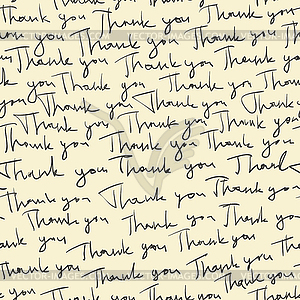 Thank you Thank
Thank you Thank you
Thank you Thank you
Thank you Thank you Thank
you Thank you Thank you
Thank you Thank you
Thank you Thank you
Thank you Thank you Thank
Thank you Thank you
Thank you Thank you
Thank you Thank you
Thank you Thank you
Thank you Thank you
Thank you Thank you
Thank you Thank you